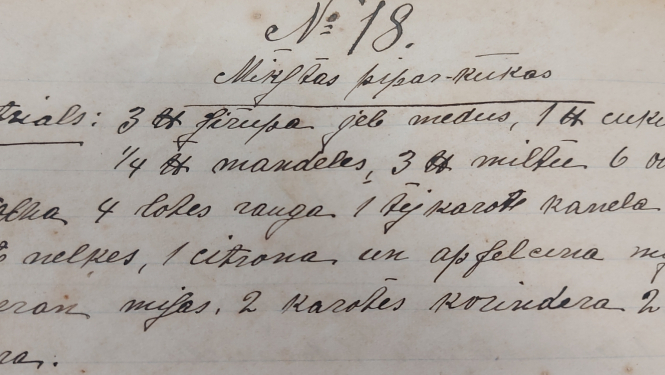 № 18.
Mīkstas pipar-kūkas
trials: 3 ℔ sīrupa jeb medus, 1 ℔ cuku
1/4 ℔ mandeles, 3 ℔ miltu 6 o
4 lotes rauga 1 tējkarote kanela
nelkes, 1 citrona un apfelcina mi
mizas. 2 karotes korindera 2
ra.